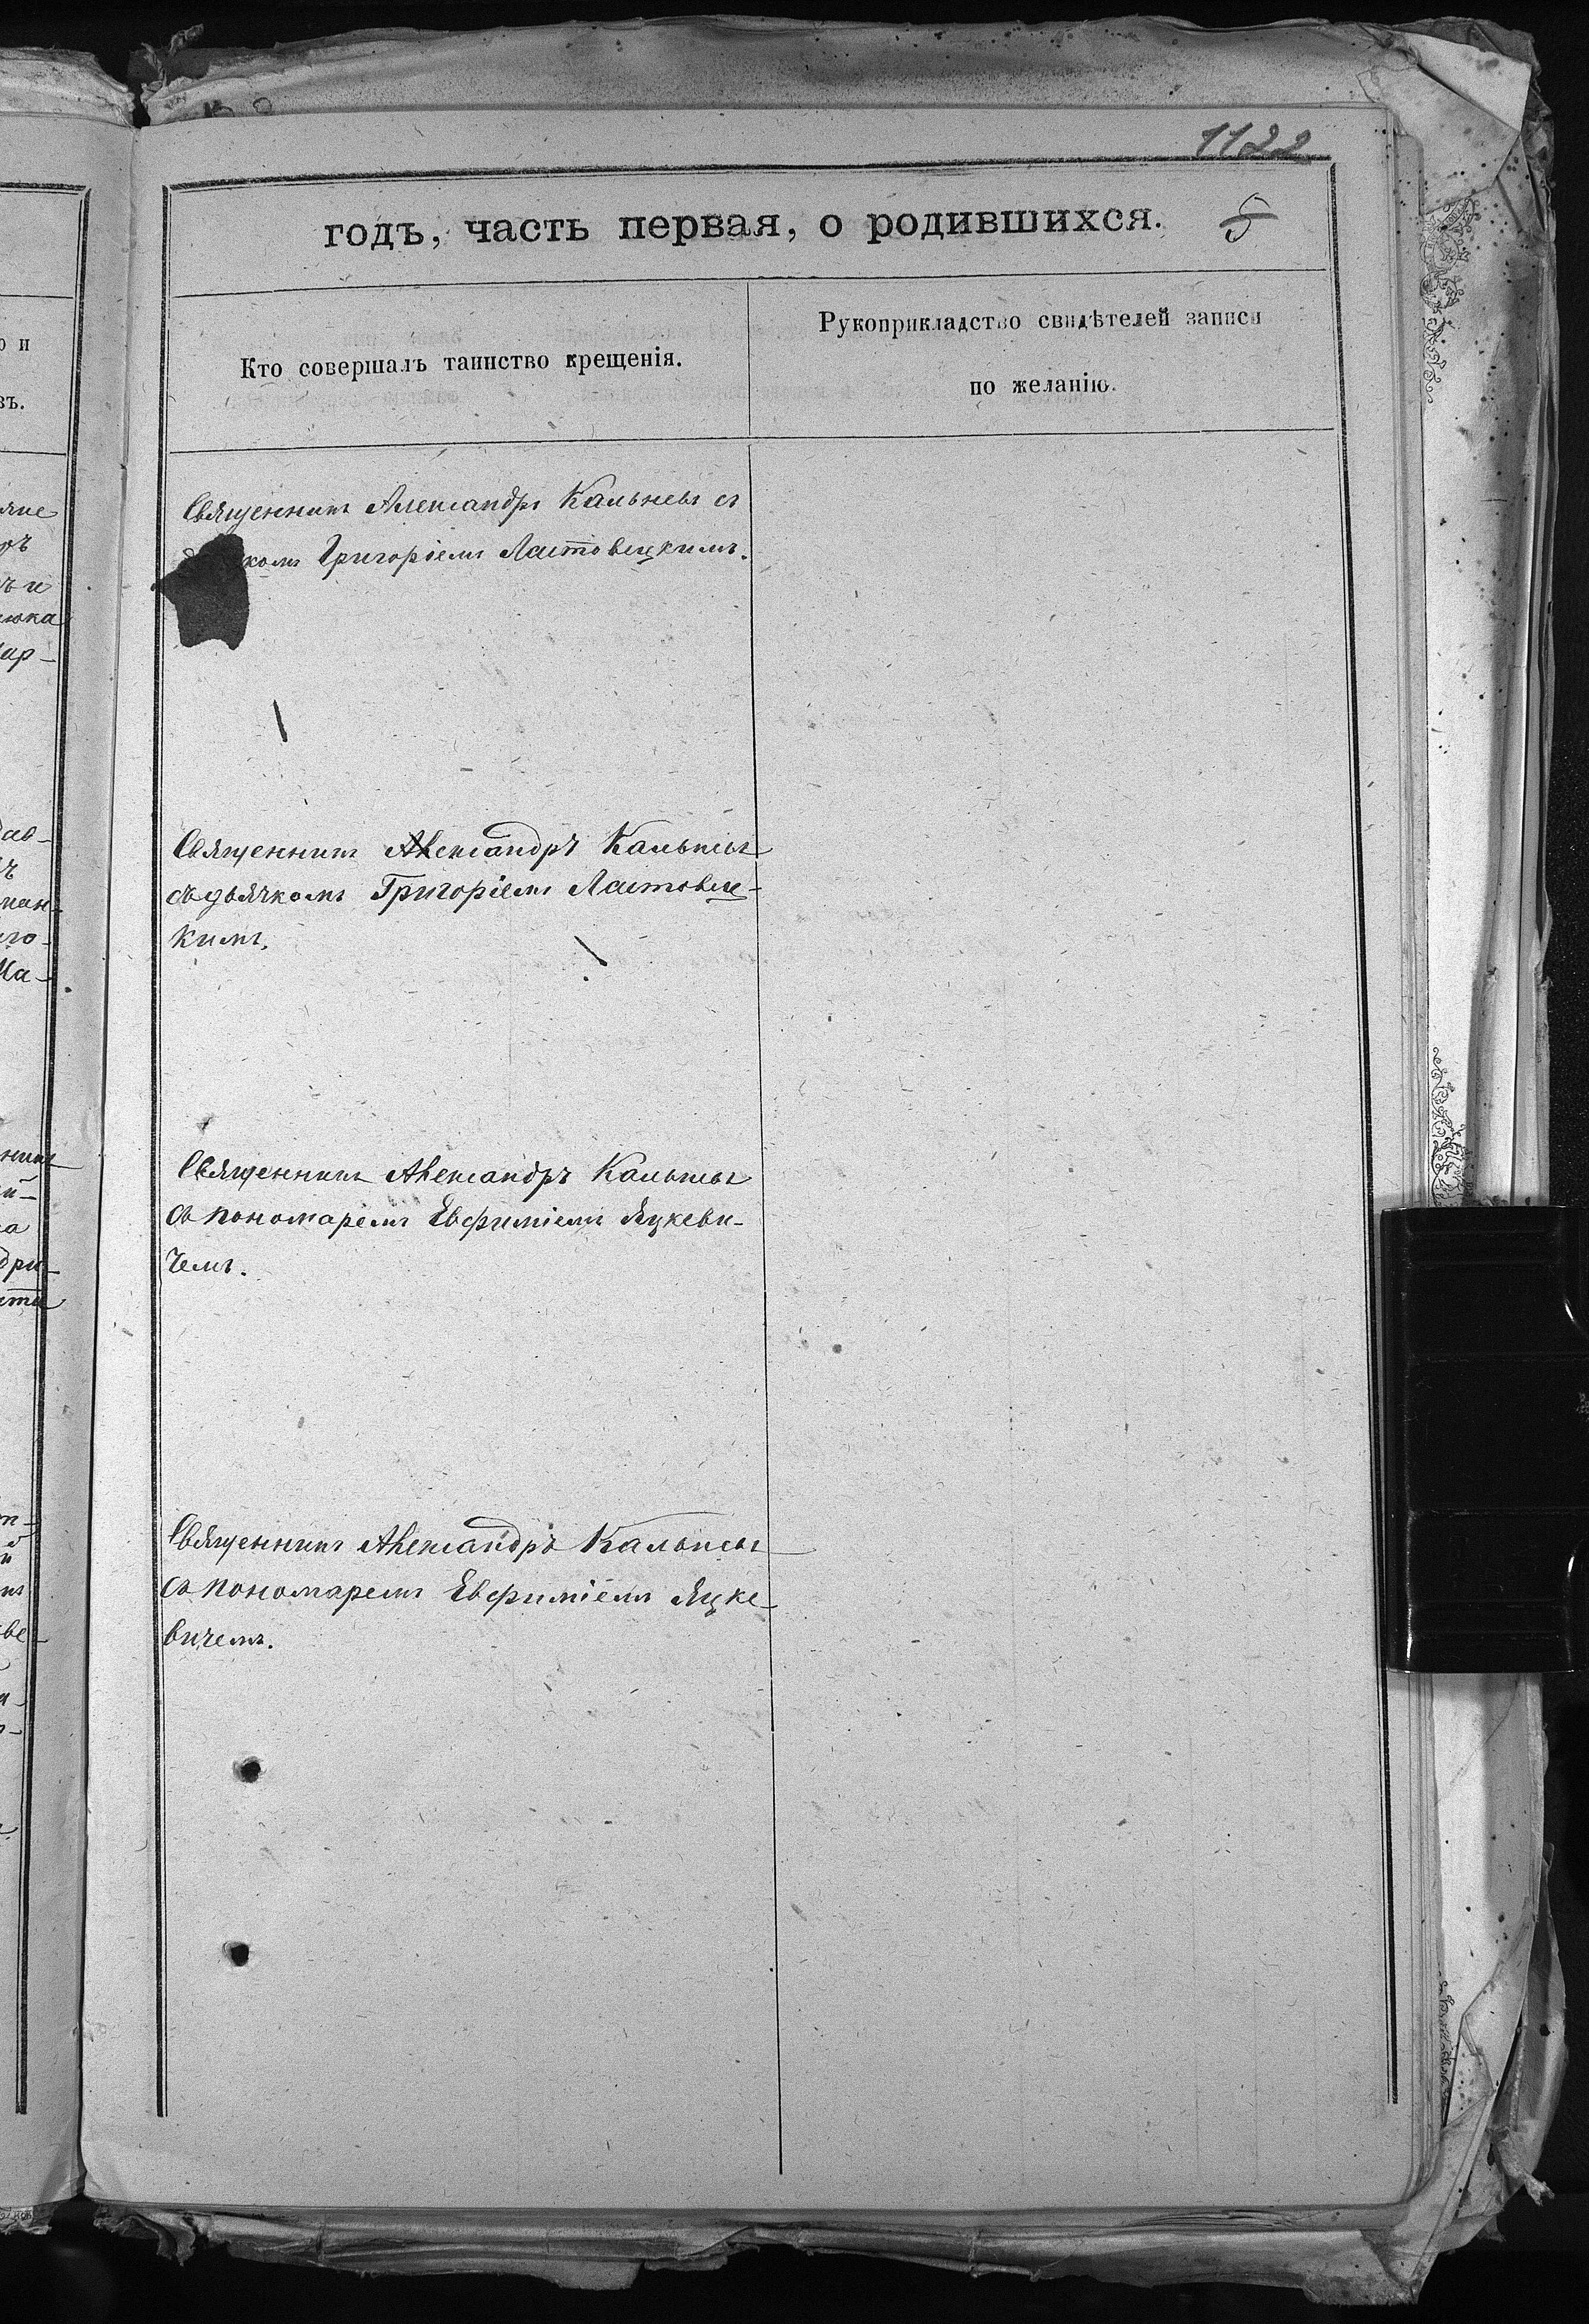 1122
годъ, часть первая, о родившихся. 5
Кто совершалъ таинство крещенія.
Рукоприкладство свидѣтелей записи
по желанію.
Священникъ Александръ Кальневъ съ
комъ Григоріемъ Ластовецкимъ.
Священникъ Александръ Кальневъ
съ дьячкомъ Григоріемъ Ластовец-
кимъ.
Священникъ Александръ Кальневъ
съ пономаремъ Евфиміемъ Яцкеви-
чемъ.
Священникъ Александръ Кальневъ
съ пономаремъ Евфиміемъ Яцке-
вичемъ.